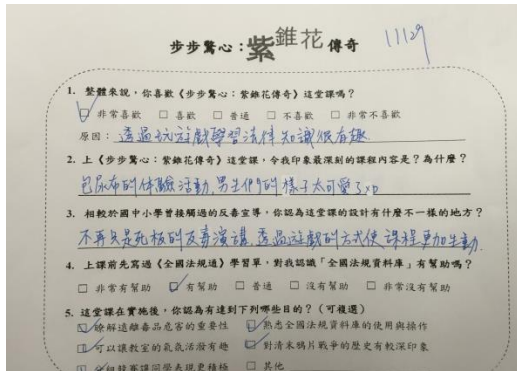 步步驚心：紫錐花傳奇
11129
1. 整體來說，你喜歡《步步驚心：紫錐花傳奇》這堂課嗎？
☑ 非常喜歡 □ 喜歡 □ 普通 □ 不喜歡 □ 非常不喜歡
原因：透過玩遊戲學習法律知識很有趣
2. 上《步步驚心：紫錐花傳奇》這堂課，令我印象最深刻的課程內容是？為什麼？
包尿布的体驗活動，男生們的樣子太可愛了xD
3. 相較於國中小學曾接觸過的反毒宣導，你認為這堂課的設計有什麼不一樣的地方？
不再只是死板的反毒演講，透過遊戲的方式使課程更加生動.
4. 上課前先寫過《全國法規通》學習單，對我認識「全國法規資料庫」有幫助嗎？
□ 非常有幫助 ☑ 有幫助 □ 普通 □ 沒有幫助 □ 非常沒有幫助
5. 這堂課在實施後，你認為有達到下列哪些目的？（可複選）
☑ 瞭解遠離毒品危害的重要性 ☑ 熟悉全國法規資料庫的使用與操作
☑ 可以讓教室的氣氛活潑有趣 ☑ 對清末鴉片戰爭的歷史有較深印象
分組競賽讓同學表現更積極 □ 其他